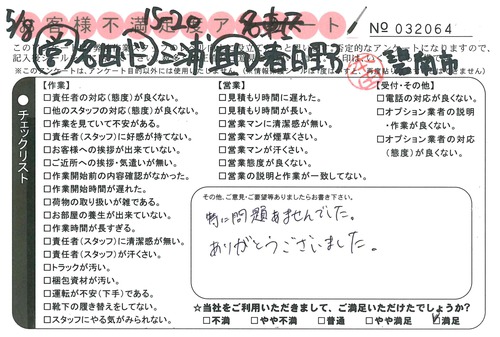 5/8 15-20
お客様不満足度アンケート
No 032064
チェックリスト
【作業】
□責任者の対応(態度)が良くない。
□他のスタッフの対応(態度)が良くない。
□作業を見ていて不安がある。
□責任者(スタッフ)に好感が持てない。
□お客様への挨拶が出来ていない。
□ご近所への挨拶・気遣いが無い。
□作業開始前の内容確認がなかった。
□作業開始時間が遅れた。
□荷物の取り扱いが雑である。
□お部屋の養生が出来ていない。
□作業時間が長すぎる。
□責任者(スタッフ)に清潔感が無い。
□トラックが汚い。
□梱包資材が汚い。
□運転が不安(下手)である。
□靴下の履き替えをしてない。
□スタッフにやる気がみられない。
【営業】
□見積もり時間に遅れた。
□見積もり時間が長い。
□営業マンに清潔感が無い。
□営業マンが煙草くさい。
□営業マンが汗くさい。
□営業態度が良くない。
□営業の説明と作業が一致してない。
【受付・その他】
□電話の対応が良くない。
□オプション業者の説明
・作業が良くない。
□オプション業者の対応
(態度)が良くない。
その他、ご意見・ご要望等ありましたらお書き下さい。
特に問題ありませんでした。
ありがとうございました。
☆当社をご利用いただきまして、ご満足いただけたでしょうか?
□不満 □やや不満 □普通 □やや満足 ☑満足